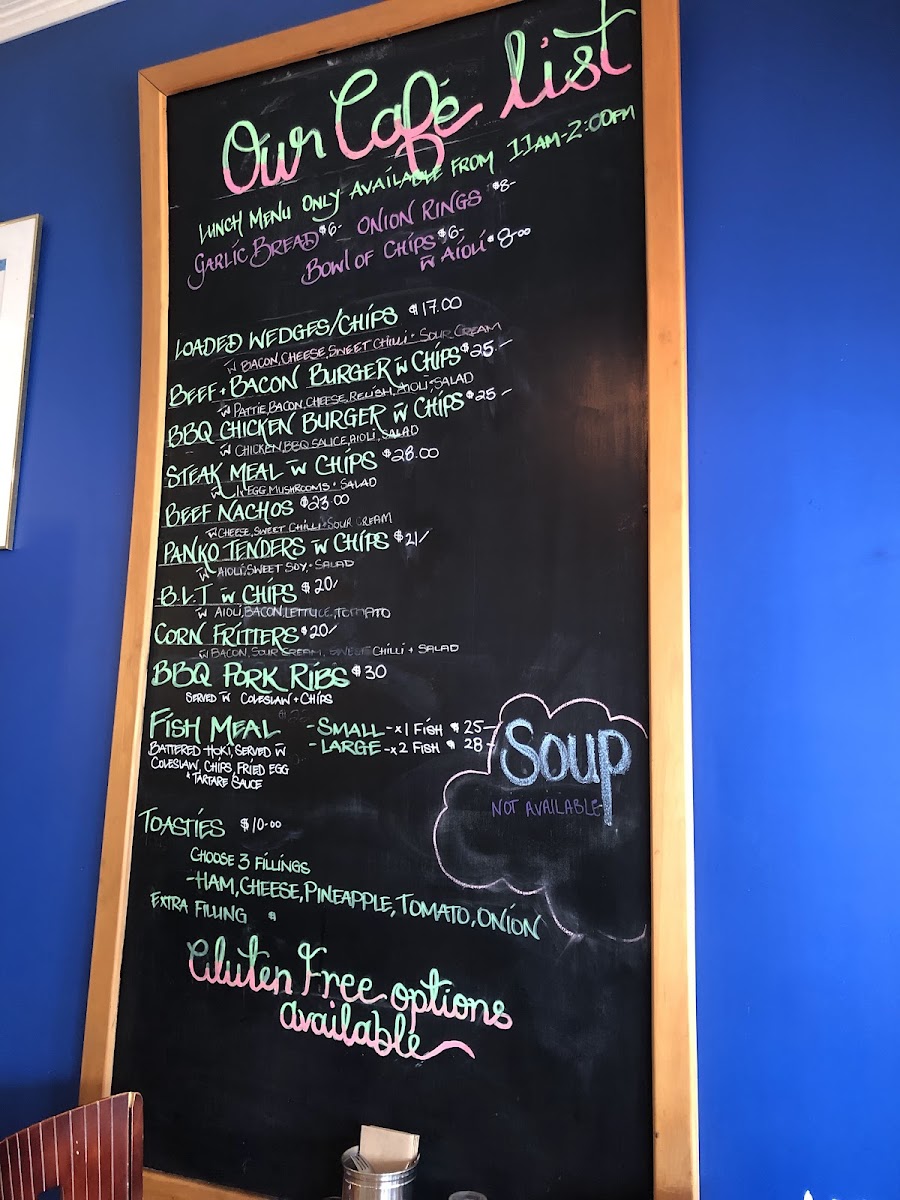 Our Café list
LUNCH MENU ONLY AVAILABLE FROM 11AM-2:00PM
GARLIC BREAD $6- ONION RINGS $8-
BOWL OF CHIPS $6-
w̄ AIOLI $8-00
LOADED WEDGES/CHIPS $17.00
w̄ BACON, CHEESE, SWEET CHILLI + SOUR CREAM
BEEF + BACON BURGER w̄ CHIPS $25.-
w̄ PATTIE, BACON, CHEESE, RELISH, AIOLI + SALAD
BBQ CHICKEN BURGER w̄ CHIPS $25-
w̄ CHICKEN, BBQ SAUCE, AIOLI, SALAD
STEAK MEAL w̄ CHIPS $28.00
w̄ EGG, MUSHROOMS + SALAD
BEEF NACHOS $23.00
w̄ CHEESE, SWEET CHILLI + SOUR CREAM
PANKO TENDERS w̄ CHIPS $21/
w̄ AIOLI, SWEET SOY, + SALAD
B.L.T w̄ CHIPS $20/
w̄ AIOLI, BACON, LETTUCE, TOMATO
CORN FRITTERS $20/
w̄ BACON, SOUR CREAM, SWEET CHILLI + SALAD
BBQ PORK RIBS $30
SERVED w̄ COLESLAW + CHIPS
FISH MEAL - SMALL - x 1 FISH $25-
- LARGE - x 2 FISH $28-
BATTERED HOKI, SERVED w̄
COLESLAW, CHIPS, FRIED EGG
+ TARTARE SAUCE
SOUP
NOT AVAILABLE
TOASTIES $10-00
CHOOSE 3 FILLINGS
-HAM, CHEESE, PINEAPPLE, TOMATO, ONION
EXTRA FILLING $
Gluten Free options
available